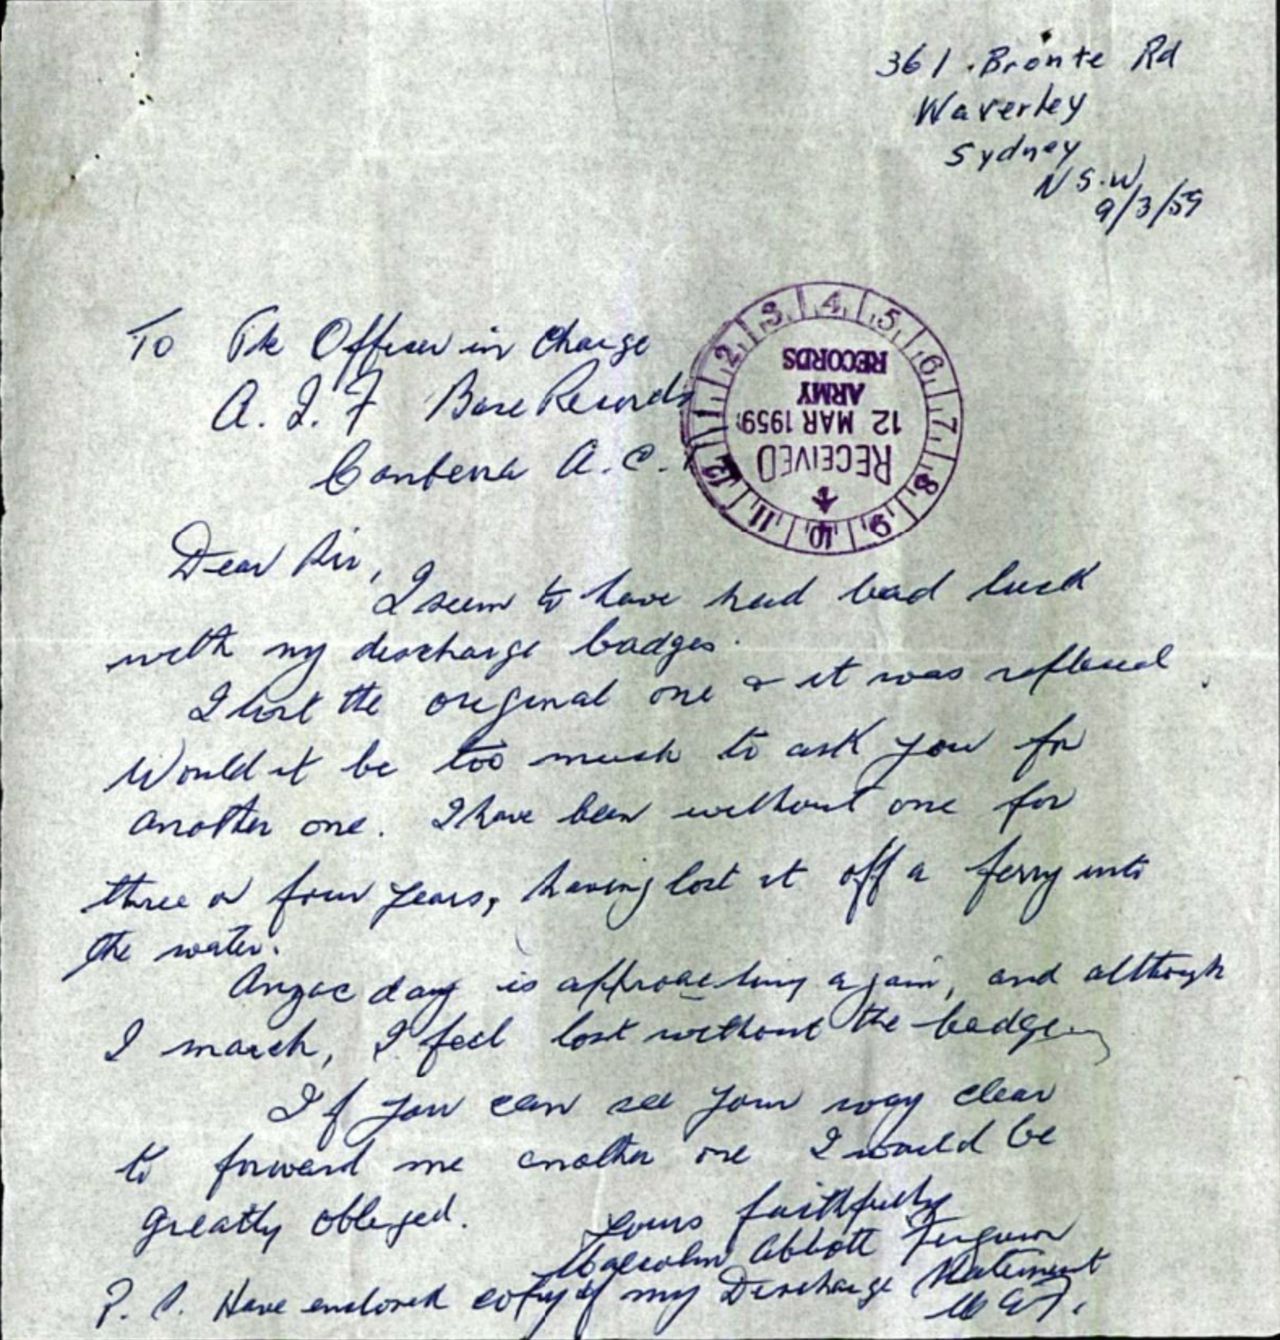 361 Bronte Rd
Waverley
Sydney
N S.W
9/3/59
To The Officer in Charge
A. I. F Base Records
Canberra A.C.
3 4 5 6 7 8 9 10 11 12 1 2
RECORDS
ARMY
12 MAR 1959
RECEIVED
Dear Sir,
I seem to have had bad luck
with my discharge badges.
I lost the original one & it was
Would it be too much to ask you for
another one. I have been without one for
three or four years, having lost it off a ferry into
the water.
Anzac day is approaching again, and although
I march, I feel lost without the badge
If you can see your way clear
to forward me another one I would be
greatly obliged.
Yours faithfully
Malcolm Abbott Ferguson
P. S. Have enclosed copy of my Discharge Statement